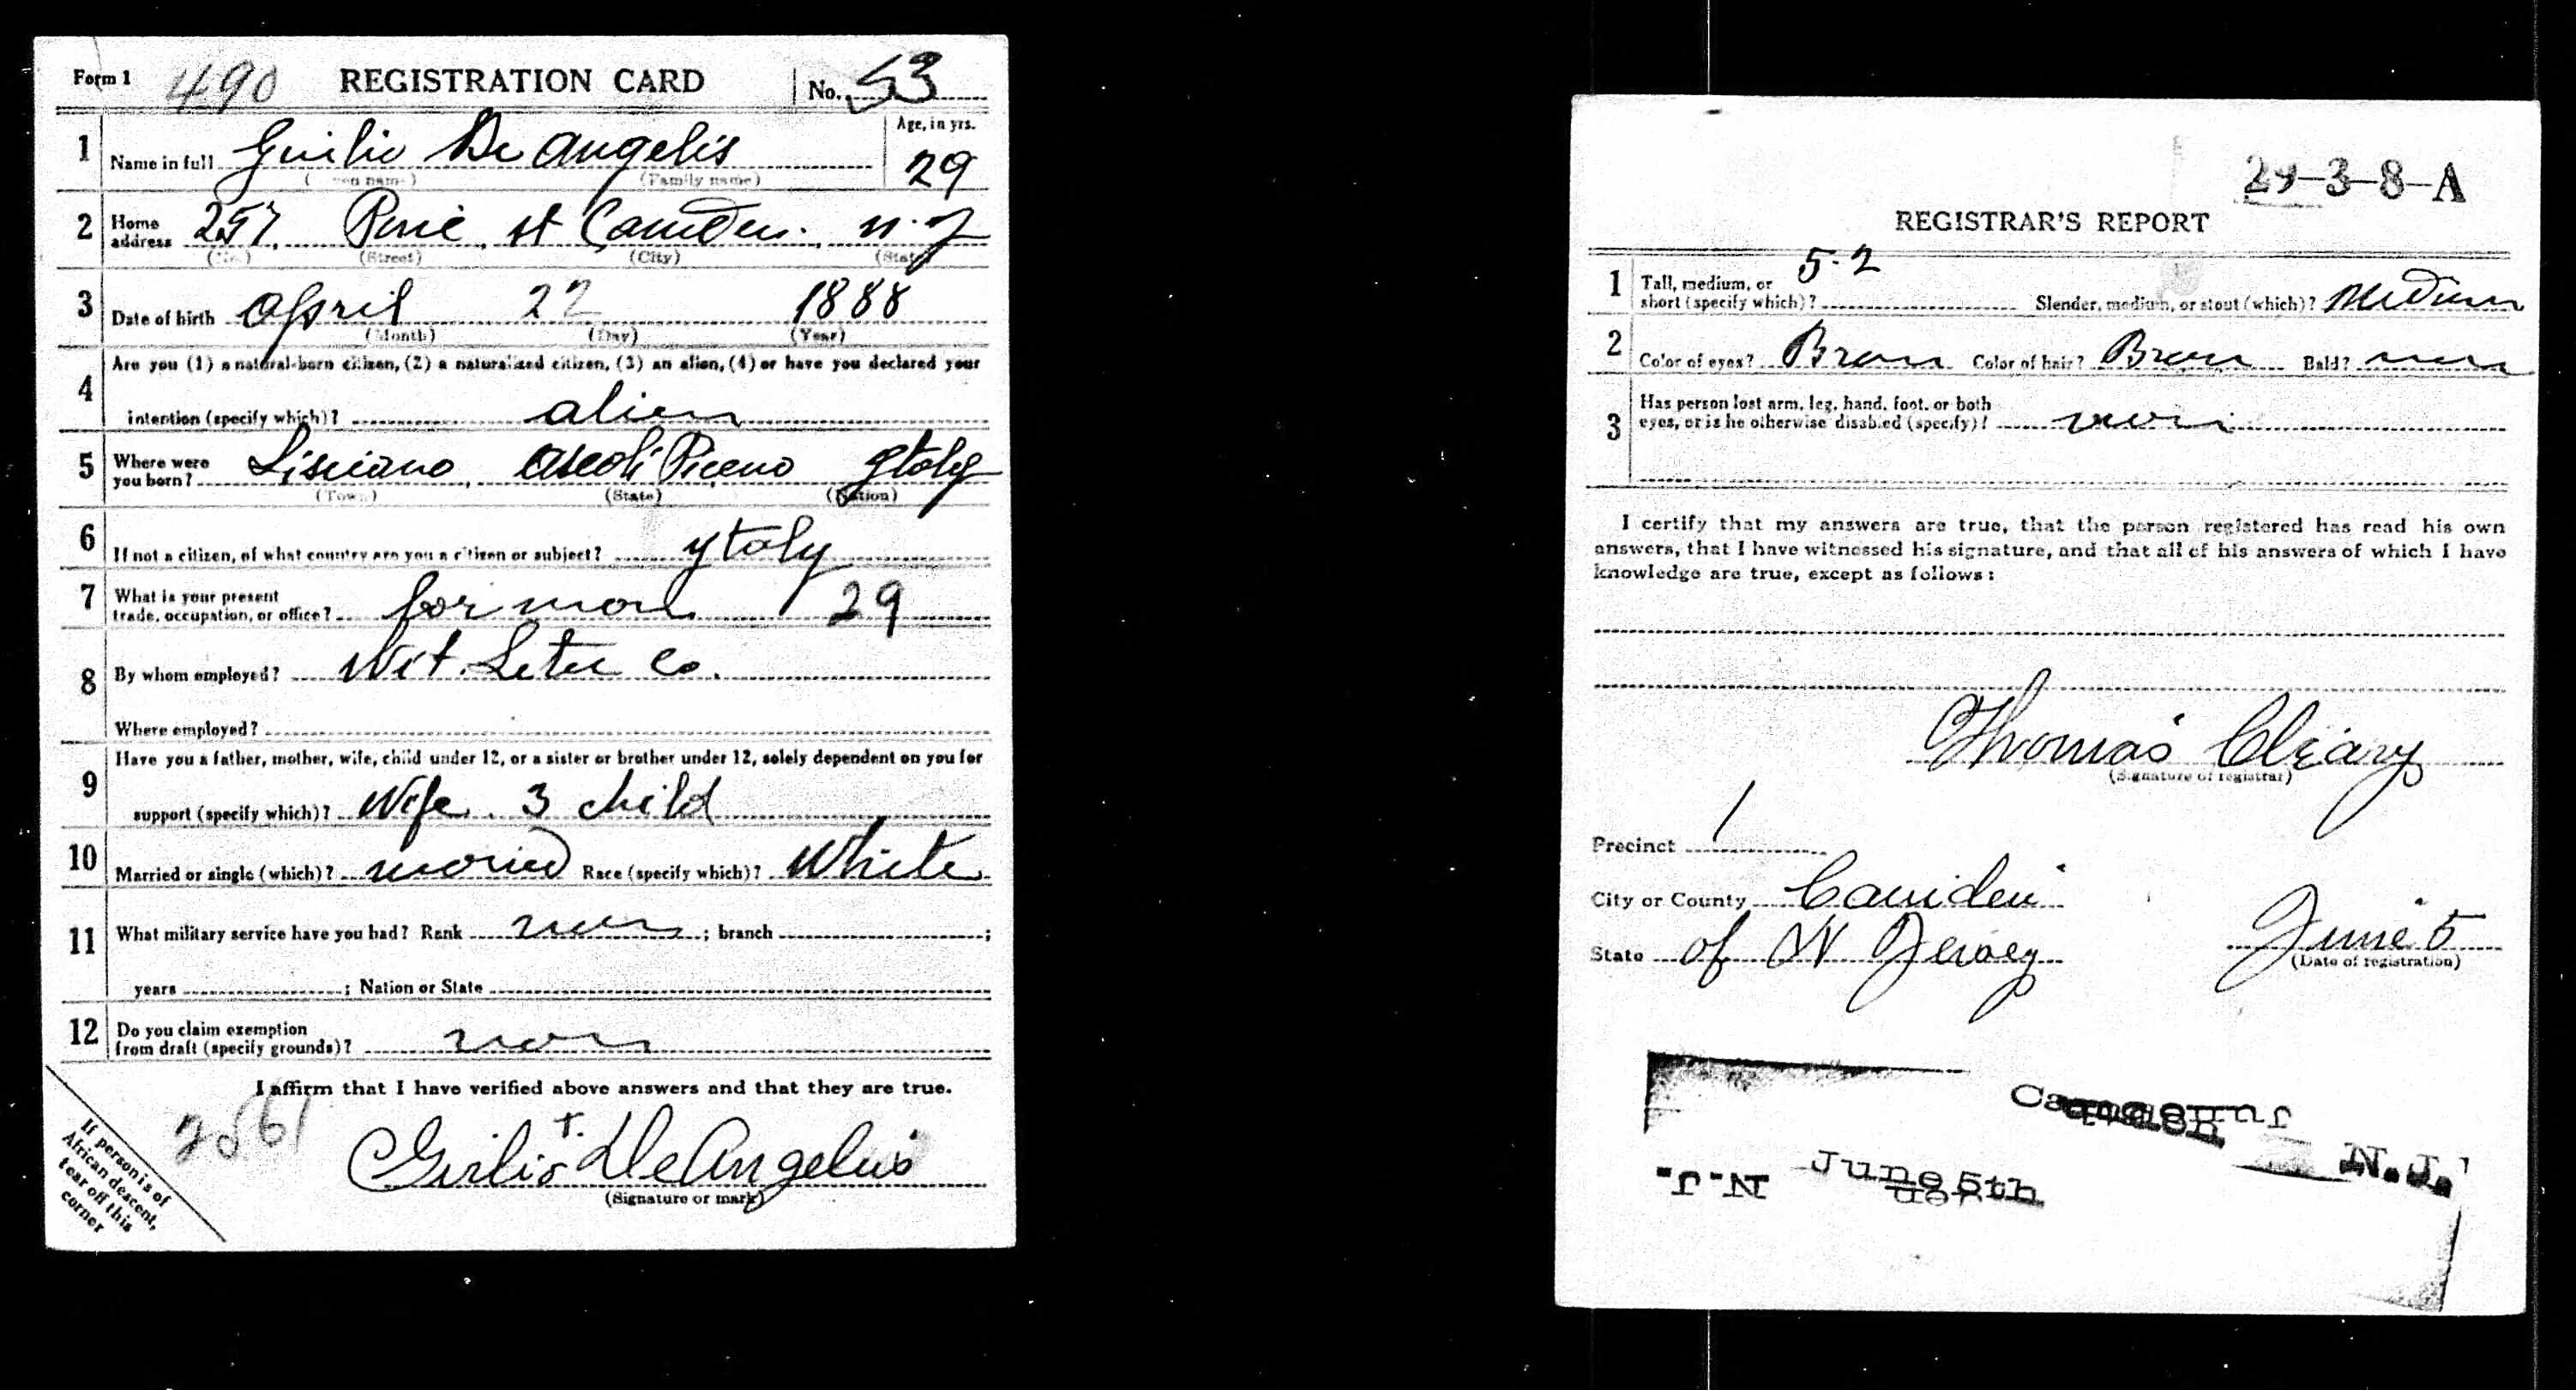 Form 1 490 REGISTRATION CARD No. 53
1 Name in full Guilio De Angelis Age, in yrs. 29
(Family name)
2 Home address 257 Pine st Camden. N.J
(No.) (Street) (City) (State)
3 Date of birth April 22 1888
(Month) (Day) (Year)
4 Are you (1) a natural-born citizen, (2) a naturalized citizen, (3) an alien, (4) or have you declared your
intention (specify which)? alien
5 Where were you born? Lisciano, Ascoli Piceno Ytaly
(Town) (State) (Nation)
6 If not a citizen, of what country are you a citizen or subject? ytaly
7 What is your present trade, occupation, or office? for man 29
8 By whom employed? Wit. Co.
Where employed?
9 Have you a father, mother, wife, child under 12, or a sister or brother under 12, solely dependent on you for
support (specify which)? Wife. 3 child
10 Married or single (which)? moried Race (specify which)? White
11 What military service have you had? Rank non ; branch ;
years ; Nation or State
12 Do you claim exemption from draft (specify grounds)? non
I affirm that I have verified above answers and that they are true.
2561
Girlio T. De Angelis
(Signature or mark)
If person is of
African descent,
tear off this
corner
29-3-8-A
REGISTRAR'S REPORT
1 Tall, medium, or short (specify which)? 5-2 Slender, medium, or stout (which)? Medium
2 Color of eyes? Bron Color of hair? Bron Bald? non
3 Has person lost arm, leg, hand, foot, or both
eyes, or is he otherwise disabled (specify)? non
I certify that my answers are true, that the person registered has read his own
answers, that I have witnessed his signature, and that all of his answers of which I have
knowledge are true, except as follows:
Thomas Cleary
(Signature of registrar)
Precinct 1
City or County Camden
State of N Jersey June 5
(Date of registration)
Camden N.J.
N.J. June 5th